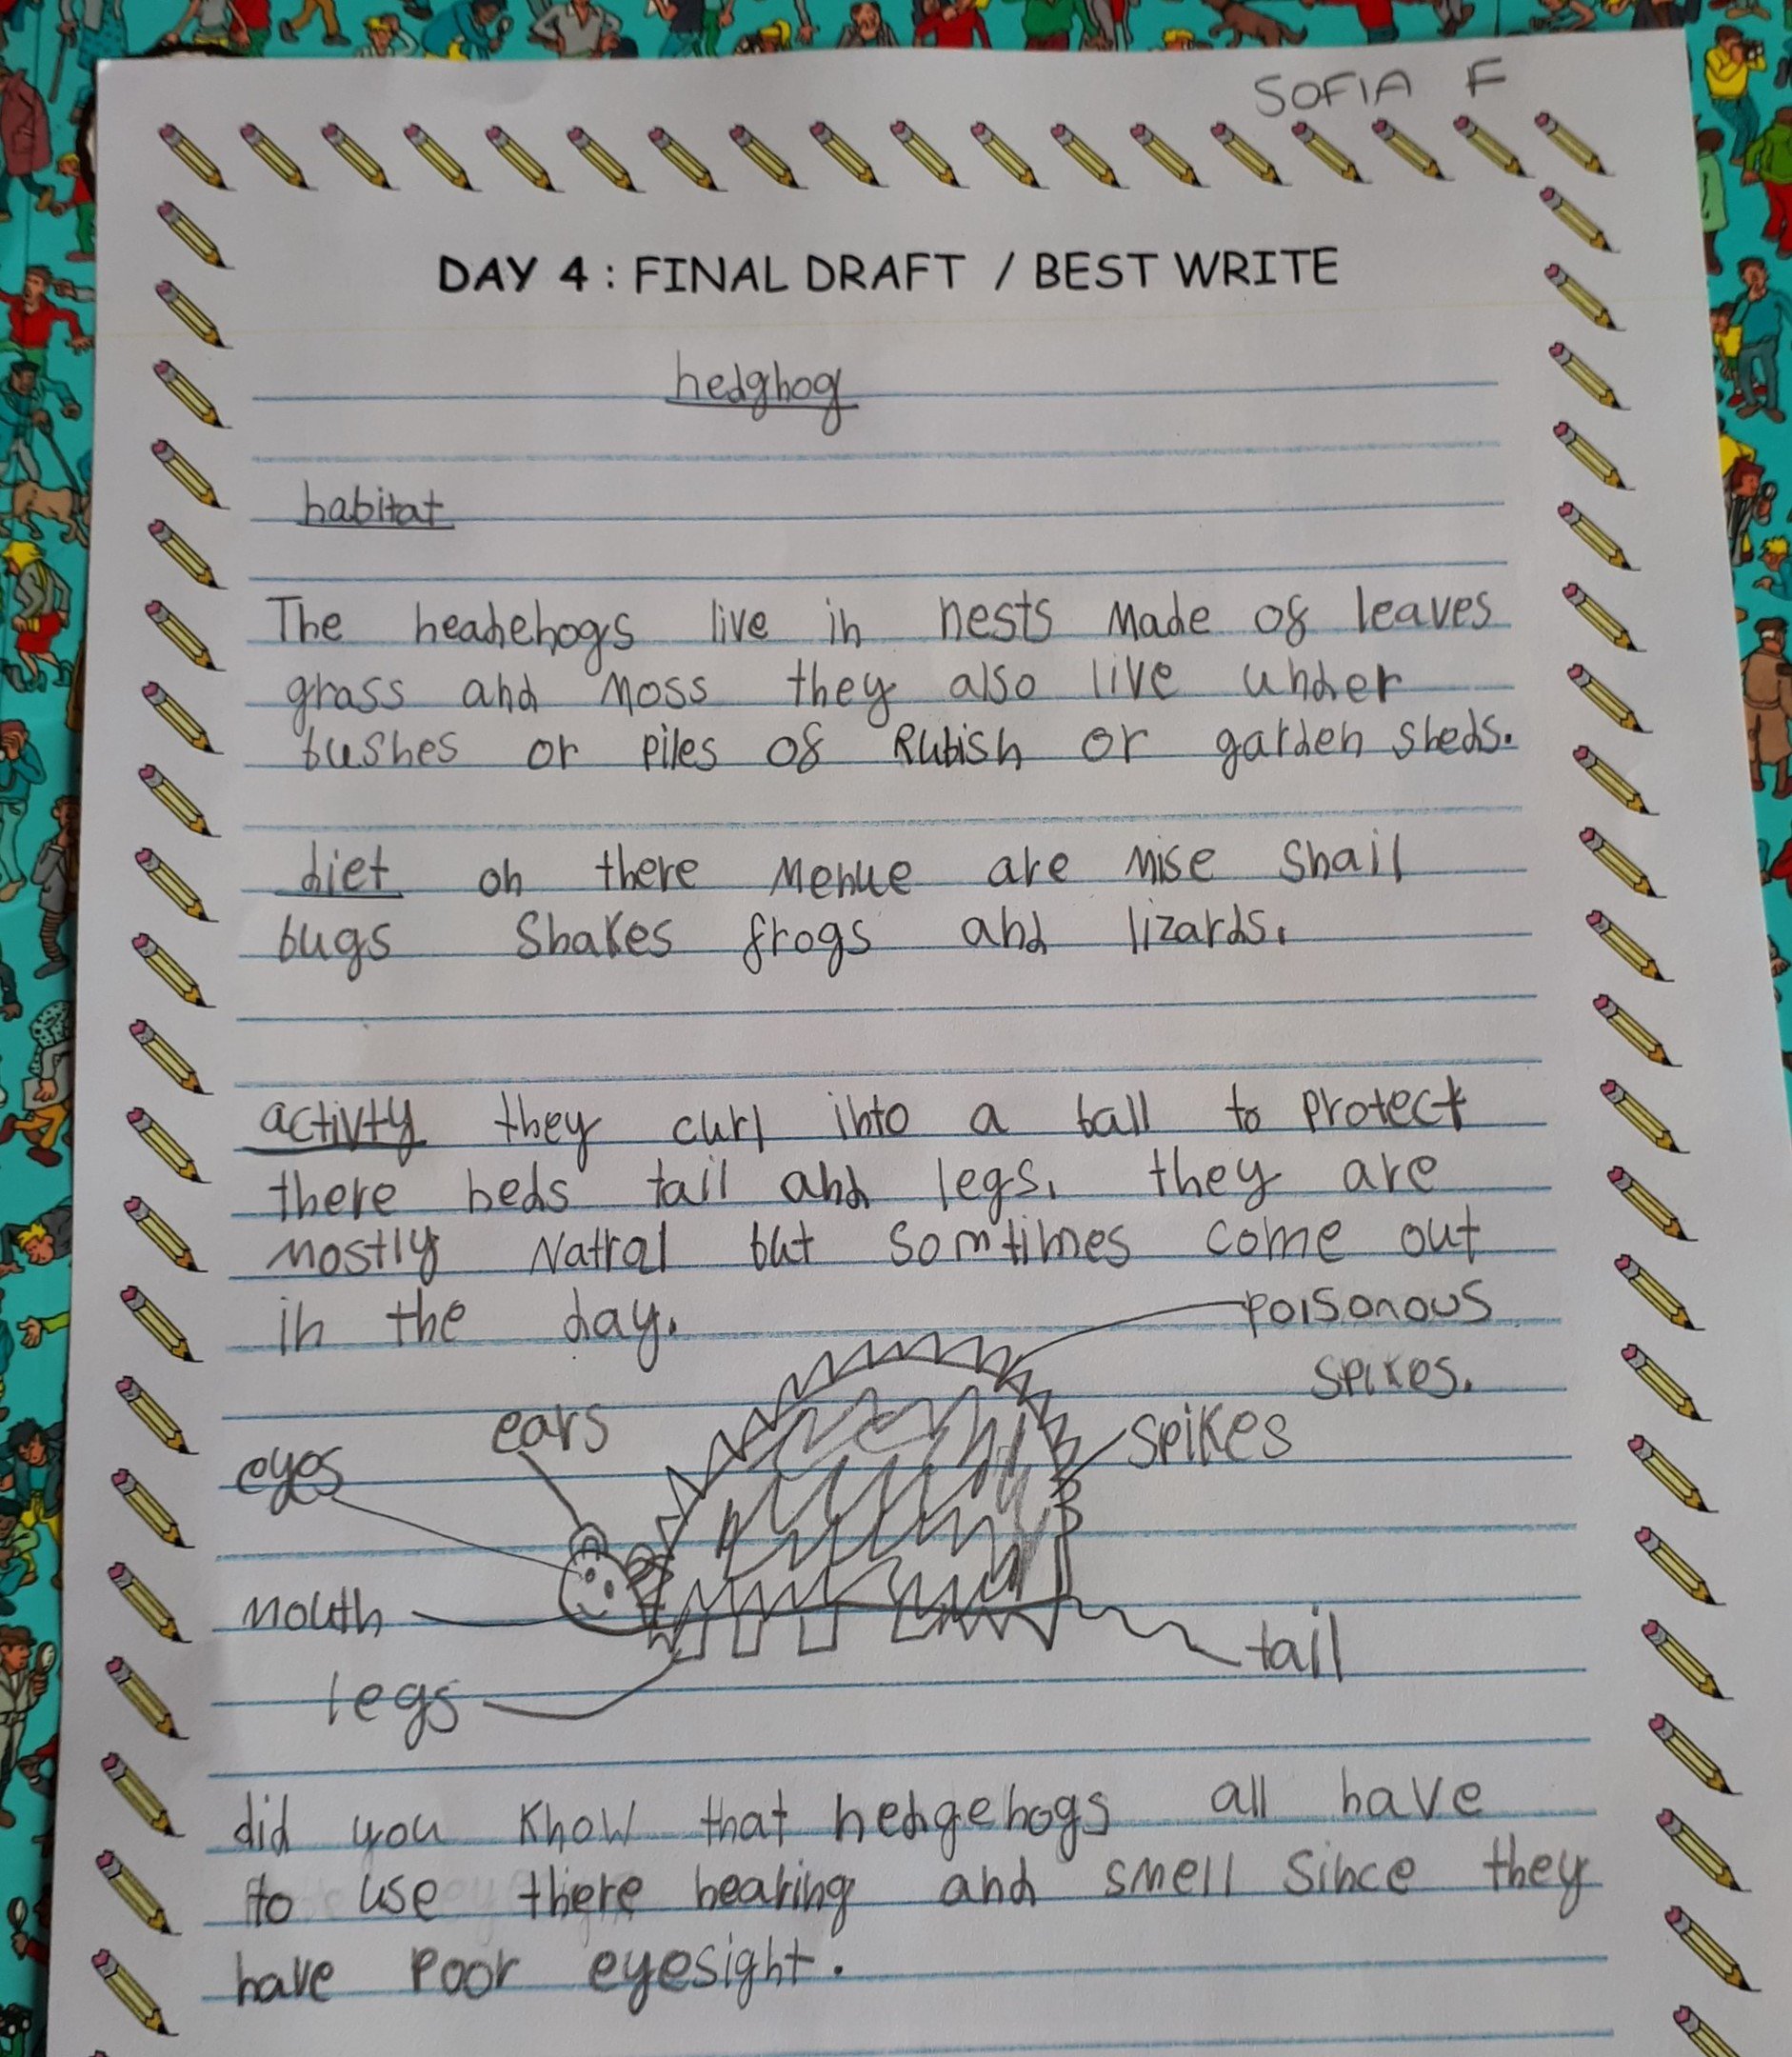 SOFIA F
DAY 4 : FINAL DRAFT / BEST WRITE
hedghog
habitat
The headehogs live in nests made of leaves
grass and moss they also live under
bushes or piles of Rubish or garden sheds.
diet on there menue are mise snail
bugs snakes frogs and lizards.
activty they curl into a ball to protect
there heds tail and legs. they are
mostly Natral but somtimes come out
in the day.
poisonous
spikes.
ears
spikes
eyes
mouth
tail
legs
did you know that hedgehogs all have
to use there hearing and smell since they
have poor eyesight.